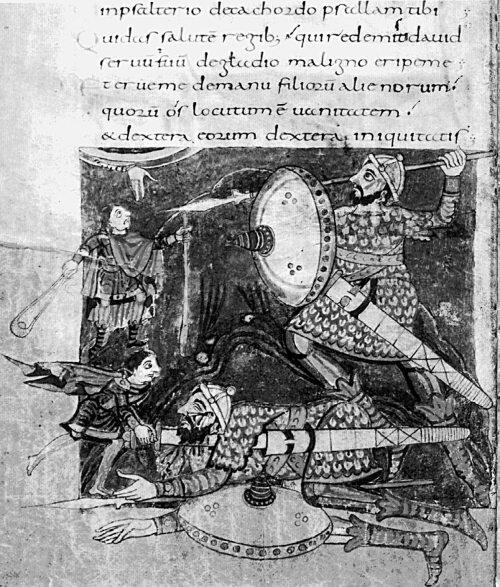 in psalterio decachordo psallam tibi
Qui das salutē regib; qui redemisti david
servū tuū de gladio maligno eripe me
Et erue me de manu filiorū alienorum
quorū os locutum ē vanitatem
& dextera eorum dextera iniquitatis